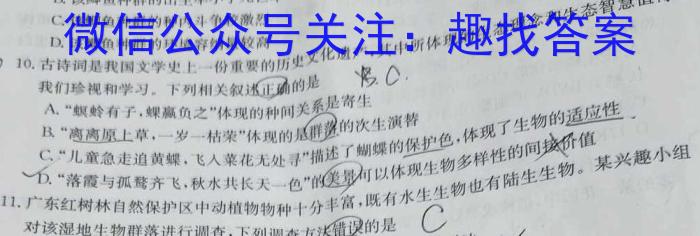 C.
种内斗争较激烈
D.
较高
微信公众号关注：趣找答案
10. 古诗词是我国文学史上一份重要的历史文化遗产，其中所体现的生态理念和生态智慧值得
我们珍视和学习。下列相关叙述正确的是
B.C.
A. “螟蛉有子，蜾蠃负之”体现的种间关系是寄生
B. “离离原上草，一岁一枯荣”体现的是群落的次生演替
C. “儿童急走追黄蝶，飞入菜花无处寻”描述了蝴蝶的保护色，体现了生物的适应性
D. “落霞与孤鹜齐飞，秋水共长天一色”的美景可以体现生物多样性的间接价值
11. 广东红树林自然保护区中动植物物种十分丰富，既有水生生物也有陆生生物。某兴趣小组
对该湿地生物群落进行调查，下列调查方法错误的是
C